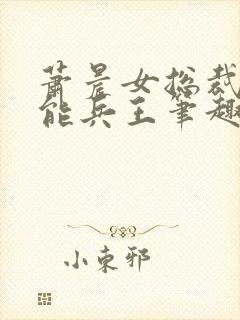 萧晨女总裁
能兵王笔趣
小東邪